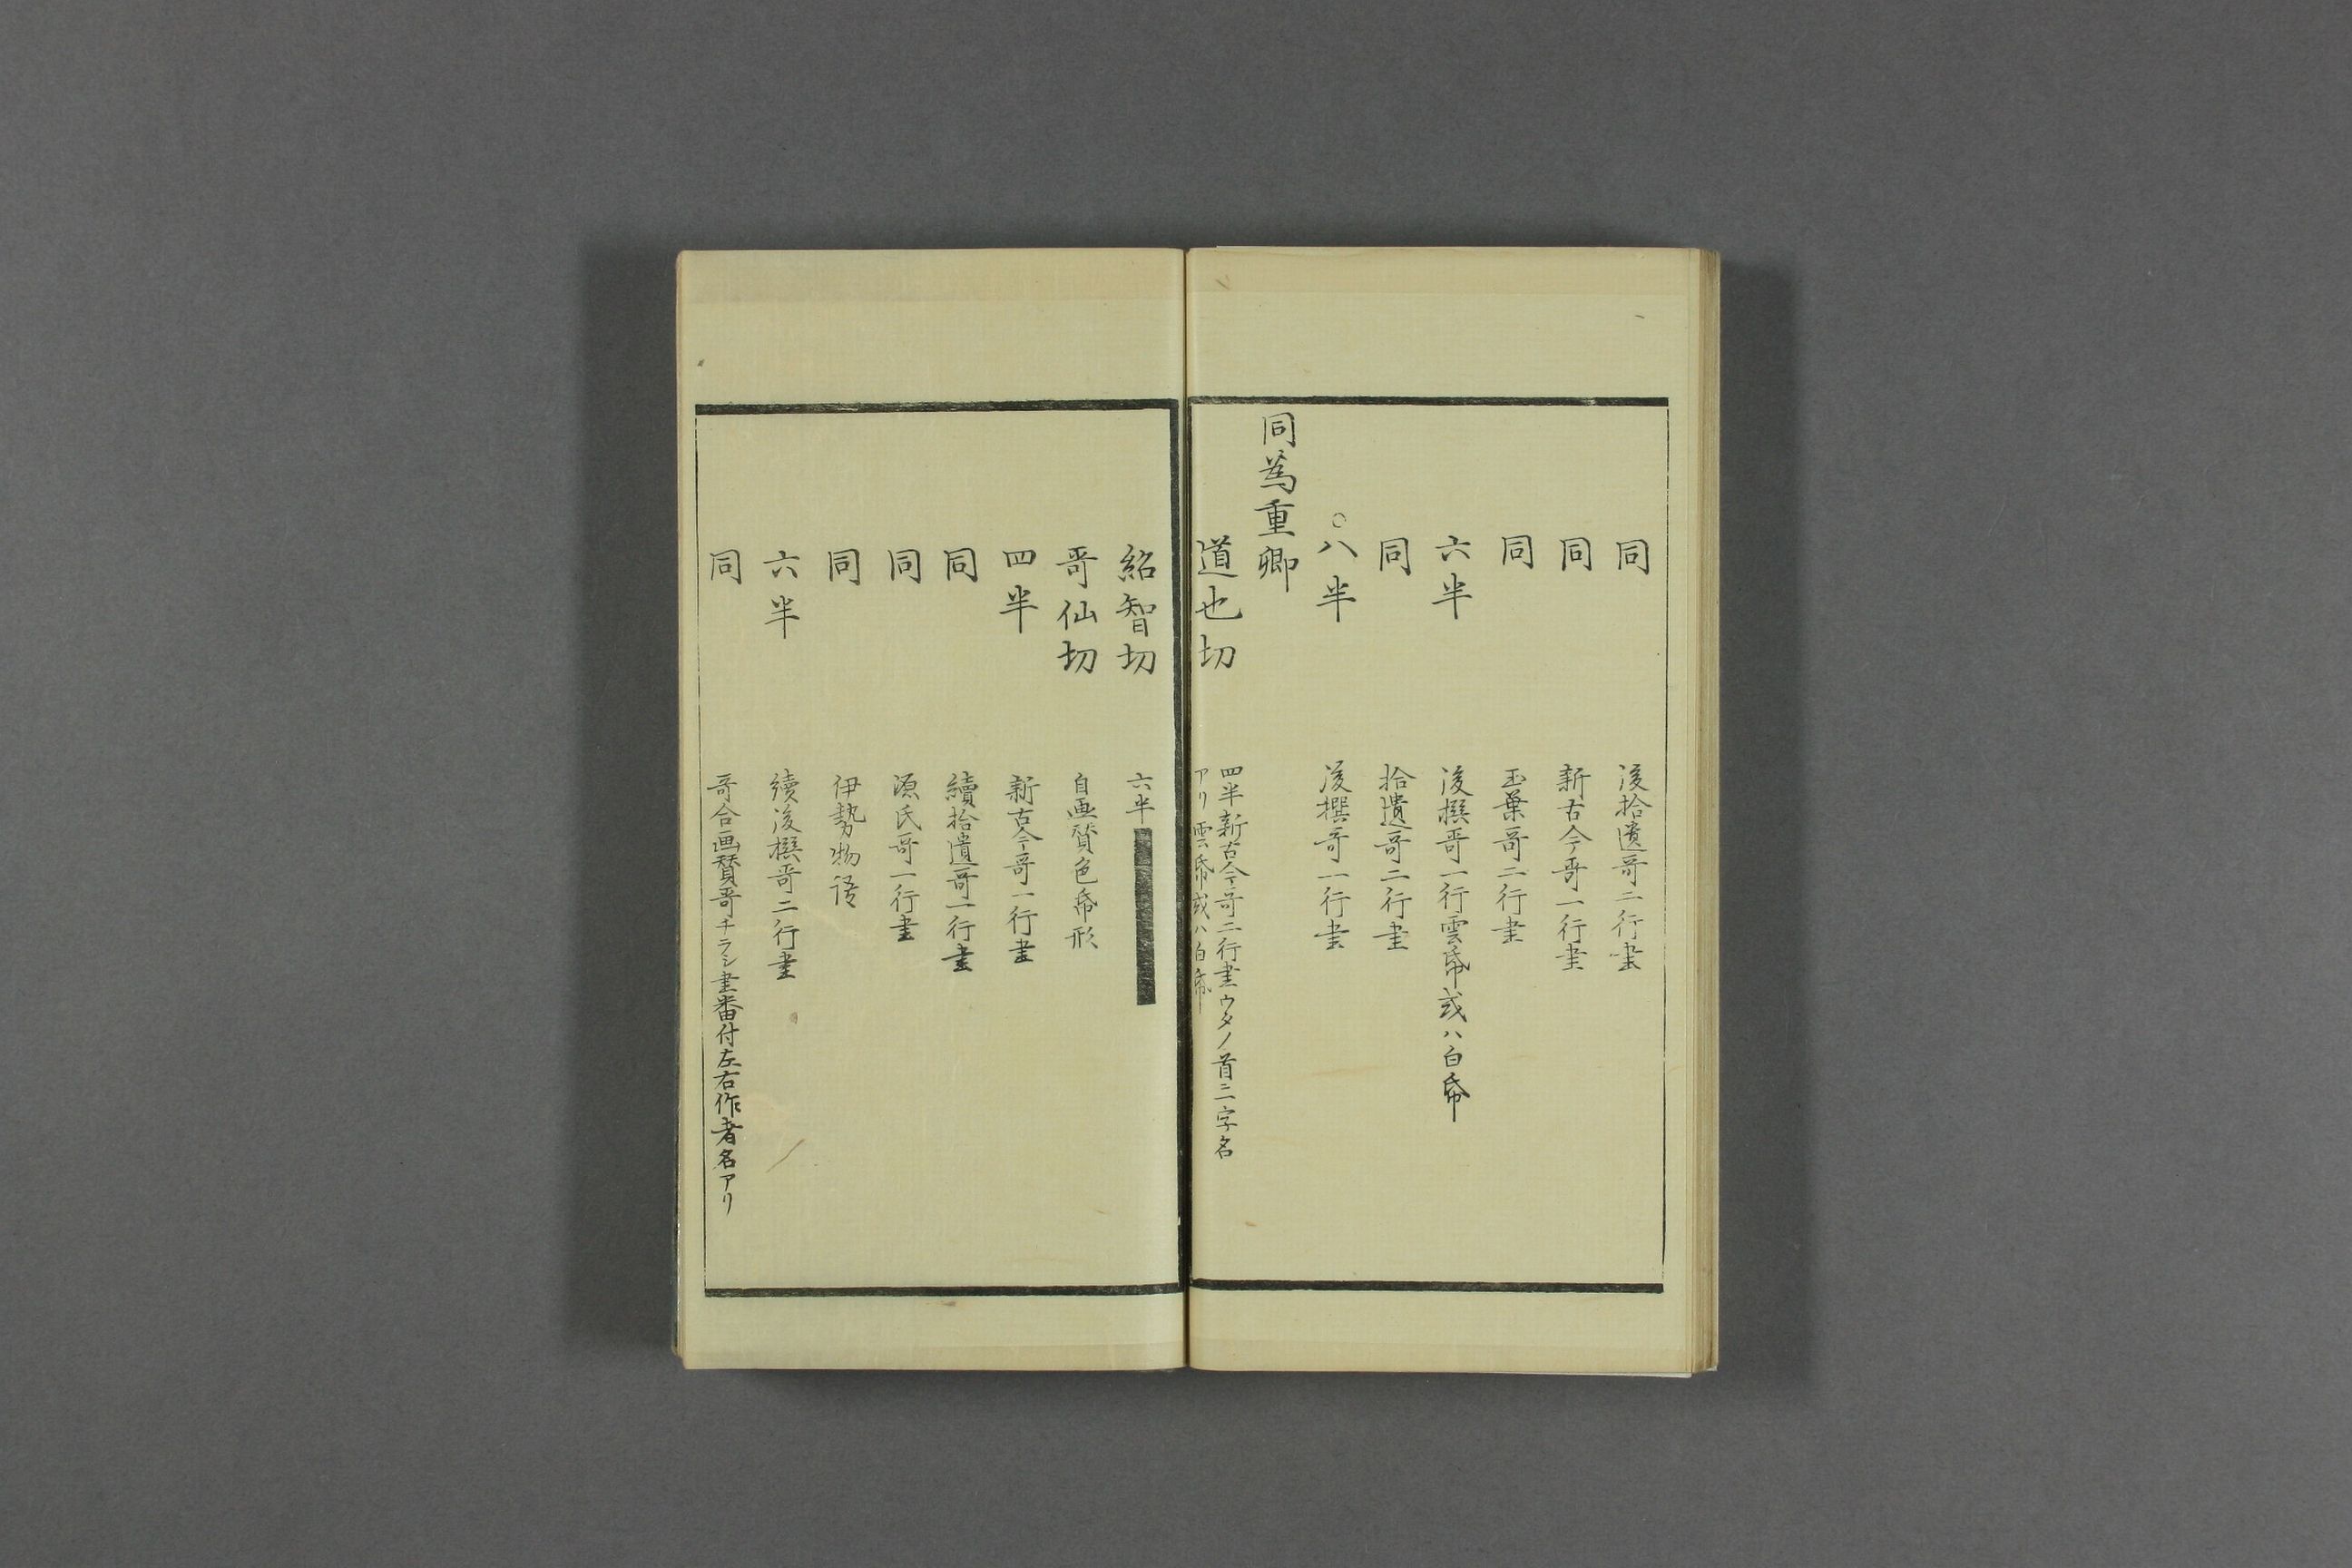 同 後拾遺哥二行書
同 新古今哥一行書
同 玉葉哥二行書
六半 後撰哥一行雲帋或ハ白帋
同 拾遺哥二行書
○八半 後撰哥一行書
同為重卿
道也切 四半新古今哥二行書ウタノ首ニ二字名
アリ雲帋或ハ白帋
紹智切 六半
哥仙切 自画賛色帋形
四半 新古今哥一行書
同 續拾遺哥一行書
同 源氏哥一行書
同 伊勢物语
六半 續後撰哥二行書
同 哥合画賛哥チラシ書番付左右作者名アリ